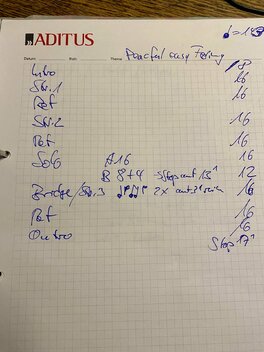 ADITUS
♩=1
Datum: Ruri: Thema: Peaceful easy Feeling
Intro 8
Str. 1 16
Ref 16
Str. 2 16
Ref 16
Solo A 16 16
B 8+4 Stop auf 13' 12
Bridge/Str. 3 2x 16
Ref 16
Outro 16
Stop 17'